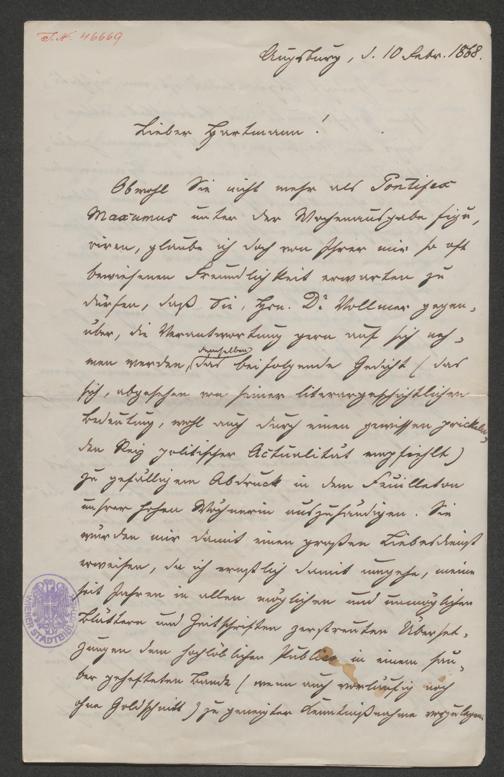 I.N. 46669
Augsburg, d. 10 Febr. 1868.
Lieber Hartmann!
Obwohl Sie nicht mehr als Pontifex
Maxumus unter der Wochenausgabe figu-
riren, glaube ich doch von Ihrer mir so oft
bewiesenen Freundlichkeit erwarten zu
dürfen, daß Sie, Hrn. Dr Vollmer gegen-
über, die Verantwortung gern auf sich neh-
men werden, demselben das beifolgende Gedicht (das
sich, abgesehen von seiner literargeschichtlichen
Bedeutung, wohl auch durch einen gewissen prickeln-
den Reiz politischer Actualität empfiehlt)
zu gefälligem Abdruck in dem Feuilleton
unsrer hohen Wöchnerin auszuhändigen. Sie
würden mir damit einen großen Liebesdienst
erweisen, da ich ernstlich damit umgehe, meine
seit Jahren in allen möglichen und unmöglichen
Blättern und Zeitschriften zerstreuten Überset-
zungen dem hochlöblichen Publico in einem sau-
ber gehefteten Bande (wenn auch vorläufig noch
ohne Goldschnitt) zu geneigter Kenntnißnahme vorzulegen.
WIENER STADTBIBL